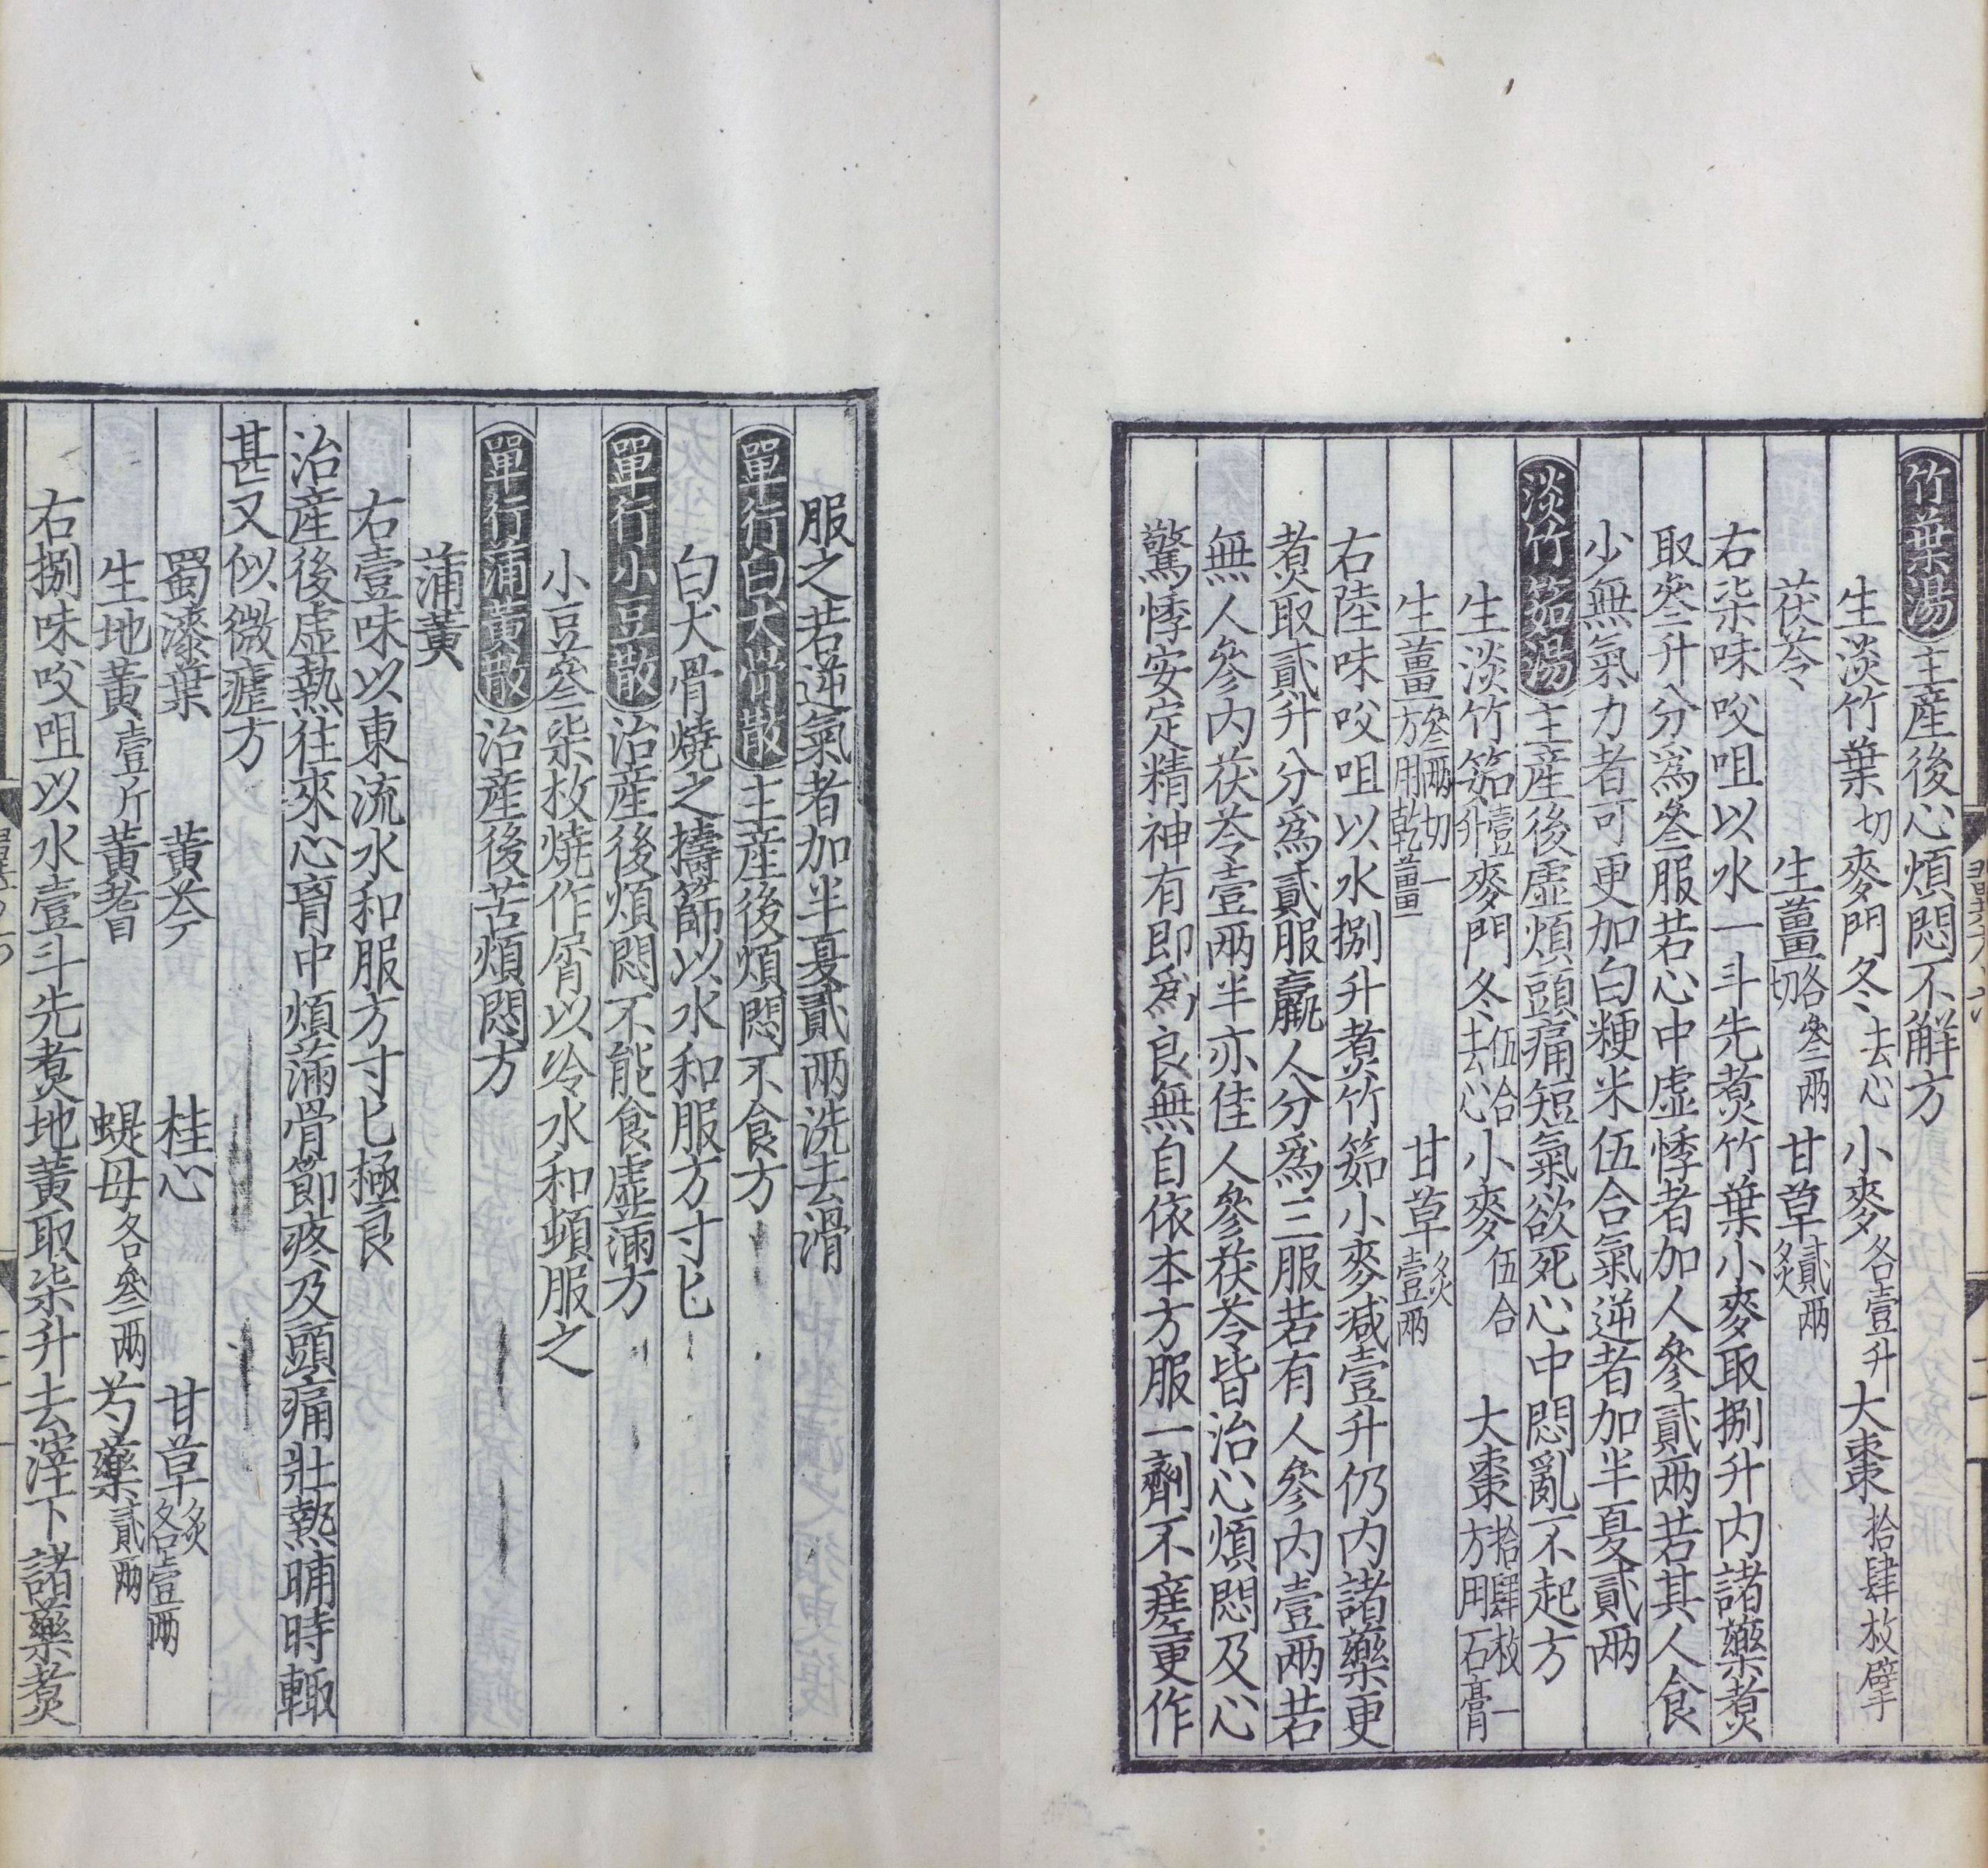 竹葉湯主產後心煩悶不解方
生淡竹葉切麥門冬去心小麥各壹升大棗拾肆枚擘
茯苓生薑各叁兩切甘草貳兩炙
右柒味㕮咀以水一斗先煑竹葉小麥取捌升内諸藥煑
取叁升分爲叁服若心中虛悸者加人參貳兩若其人食
少無氣力者可更加白粳米伍合氣逆者加半夏貳兩
淡竹茹湯主產後虛煩頭痛短氣欲死心中悶亂不起方
生淡竹茹壹升麥門冬伍合去心小麥伍合大棗拾肆枚一方用石膏
生薑叁兩切一方用乾薑甘草炙壹兩
右陸味㕮咀以水捌升煑竹茹小麥減壹升仍内諸藥更
煑取貳升分爲貳服羸人分爲三服若有人參内壹兩若
無人參内茯苓壹兩半亦佳人參茯苓皆治心煩悶及心
驚悸安定精神有即爲良無自依本方服一劑不瘥更作
服之若逆氣者加半夏貳兩洗去滑
單行白犬骨散主產後煩悶不食方
白犬骨燒之擣篩以水和服方寸匕
單行小豆散治產後煩悶不能食虛滿方
小豆叁柒枚燒作屑以冷水和頓服之
單行蒲黃散治產後苦煩悶方
蒲黃
右壹味以東流水和服方寸匕極良
治產後虛熱往來心胷中煩滿骨節疼及頭痛壯熱晡時輙
甚又似微瘧方
蜀漆葉黃芩桂心甘草炙各壹兩
生地黃壹斤黃耆蝭母各叁兩芍藥貳兩
右捌味㕮咀以水壹斗先煑地黃取柒升去滓下諸藥煑